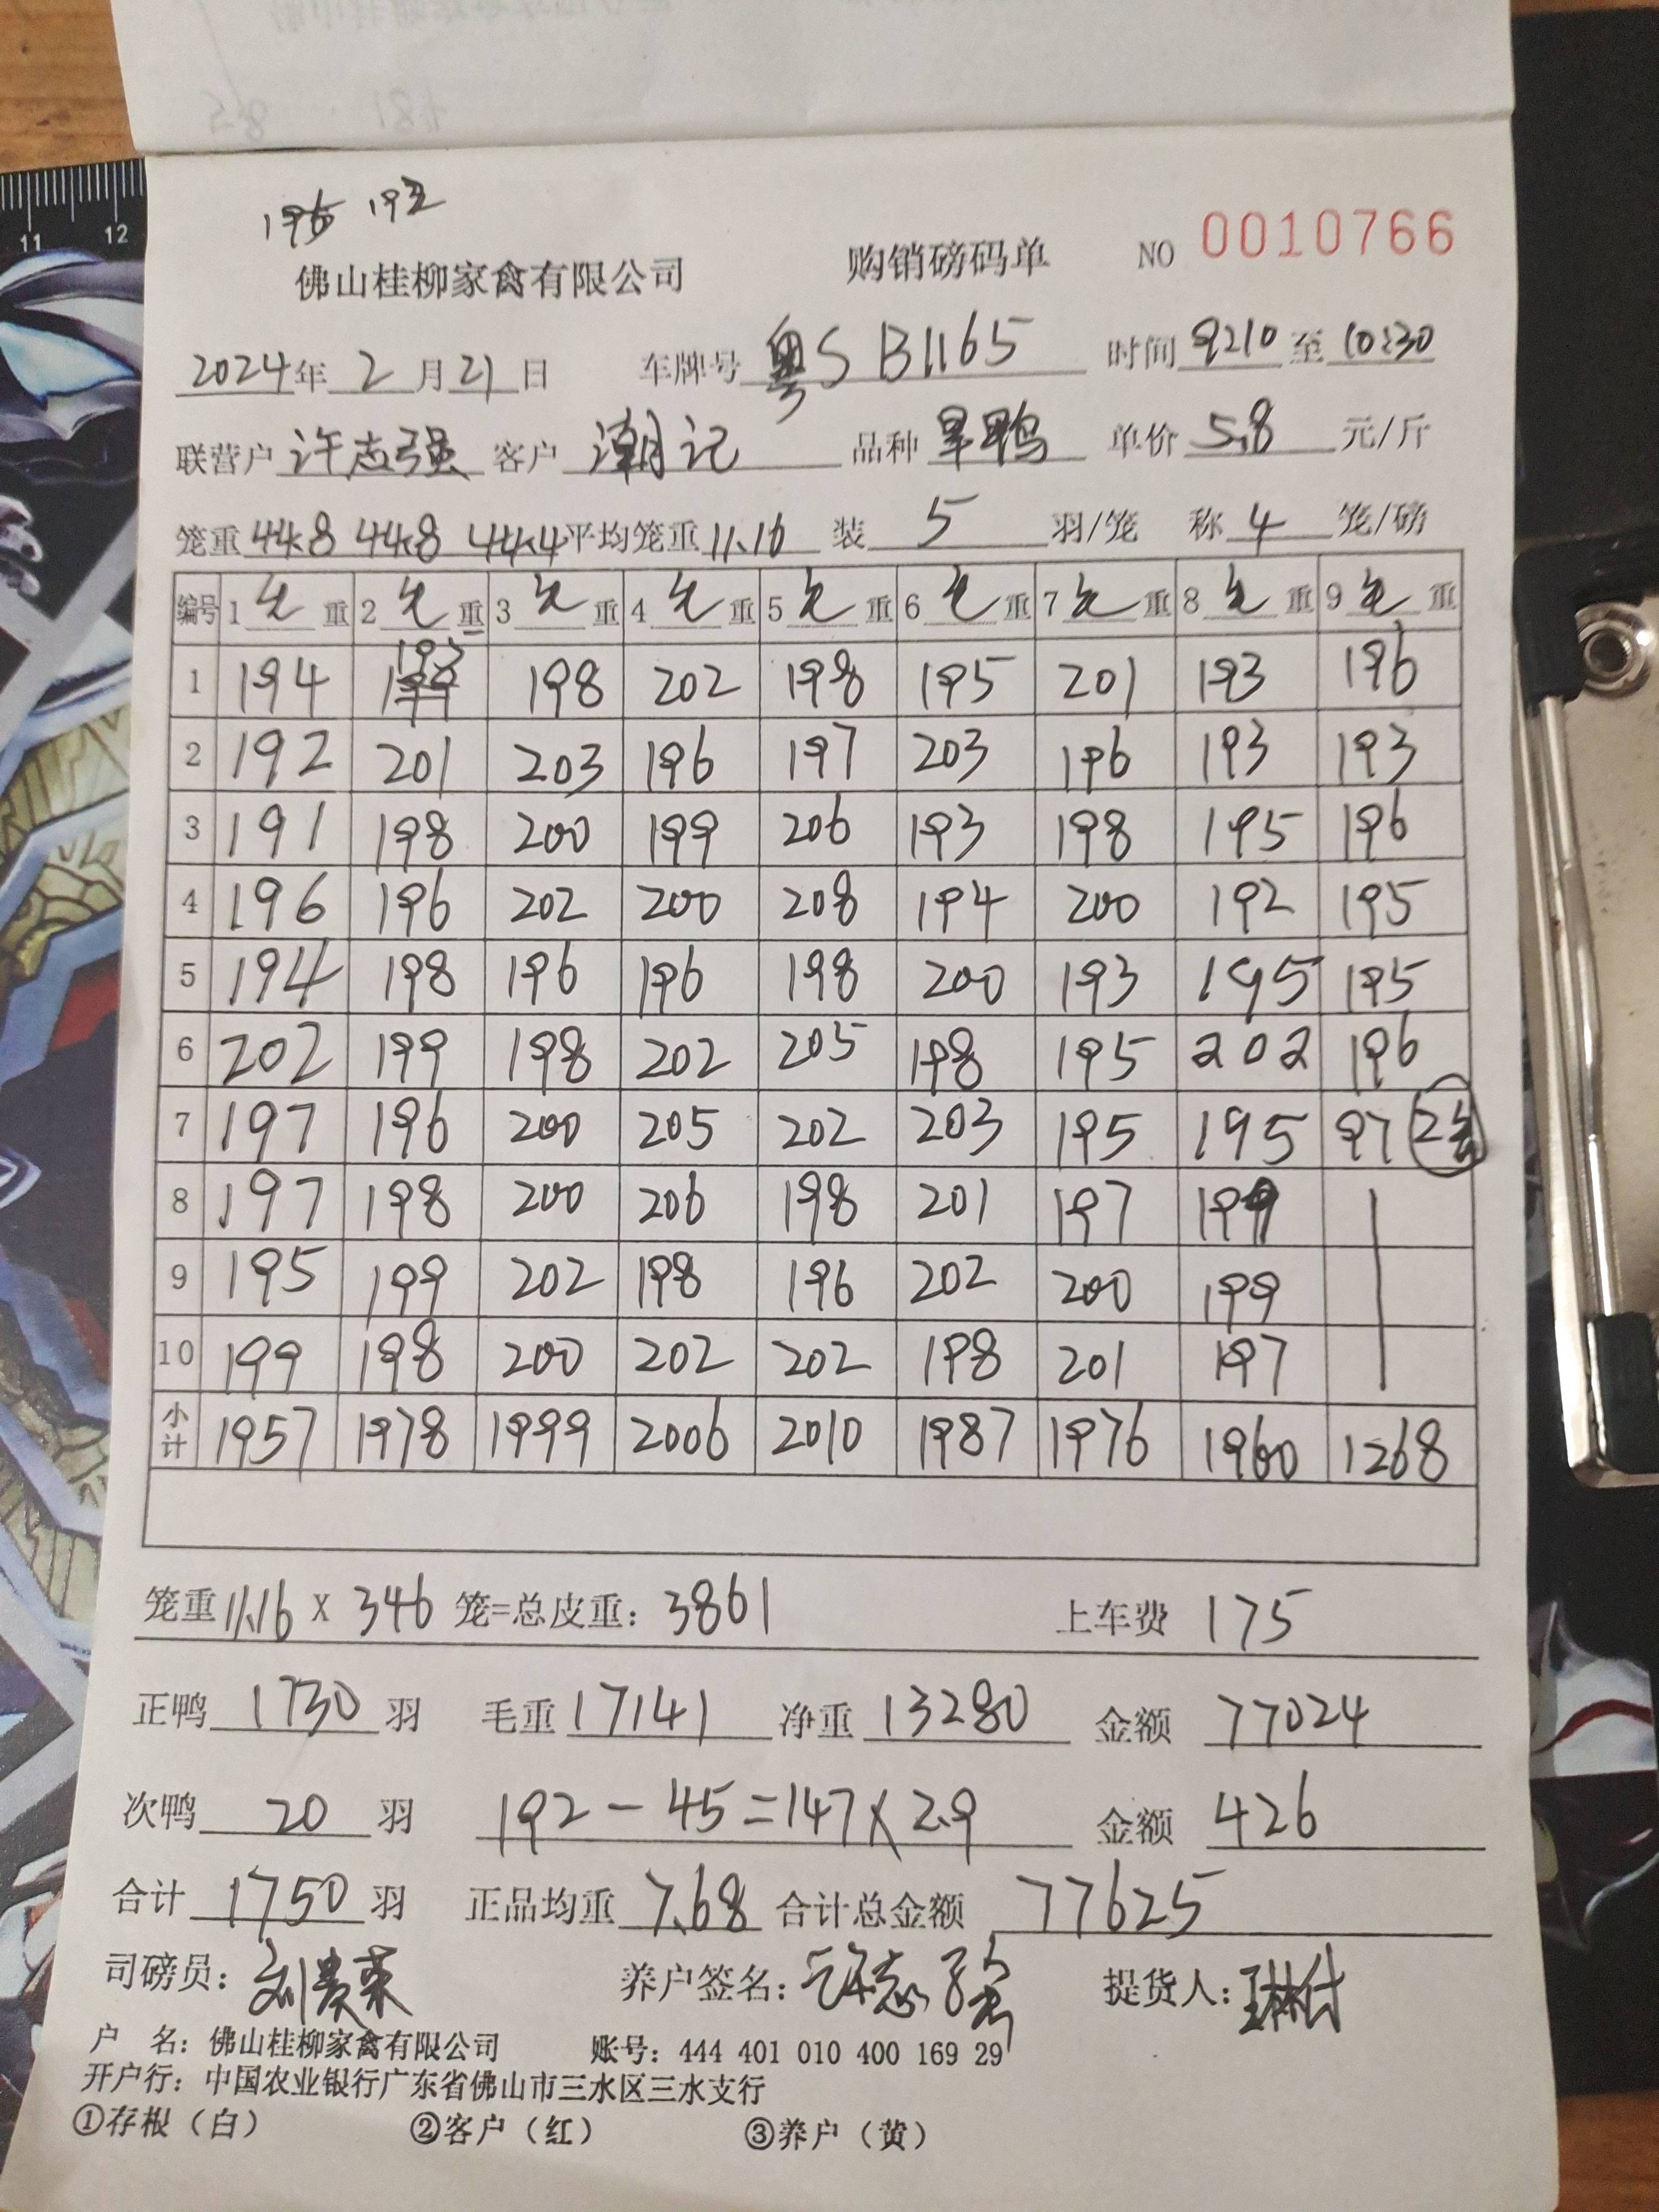 196 192
佛山桂柳家禽有限公司 购销磅码单 NO 0010766
2024年 2 月 21 日 车牌号 粤S B1165 时间 9:10 至 10:30
联营户 许志强 客户 潮记 品种 旱鸭 单价 5.8 元/斤
笼重 44.8 44.8 44.4 平均笼重 11.16 装 5 羽/笼 称 4 笼/磅
编号 1 毛 重 2 毛 重 3 毛 重 4 毛 重 5 毛 重 6 毛 重 7 毛 重 8 毛 重 9 毛 重
1 194 195 198 202 198 195 201 193 196
2 192 201 203 196 197 203 196 193 193
3 191 198 200 199 206 193 198 195 196
4 196 196 202 200 208 194 200 192 195
5 194 198 196 196 198 200 193 195 195
6 202 199 198 202 205 198 195 202 196
7 197 196 200 205 202 203 195 195 97 2笼
8 197 198 200 206 198 201 197 199
9 195 199 202 198 196 202 200 199
10 199 198 200 202 202 198 201 197
小计 1957 1978 1999 2006 2010 1987 1976 1960 1268
笼重 11.16 X 346 笼=总皮重: 3861 上车费 175
正鸭 1730 羽 毛重 17141 净重 13280 金额 77024
次鸭 20 羽 192 - 45 = 147 X 2.9 金额 426
合计 1750 羽 正品均重 7.68 合计总金额 77625
司磅员: 刘贵荣 养户签名: 许志强 提货人:
户 名: 佛山桂柳家禽有限公司 账号: 444 401 010 400 169 29
开户行: 中国农业银行广东省佛山市三水区三水支行
①存根（白） ②客户（红） ③养户（黄）
11 12